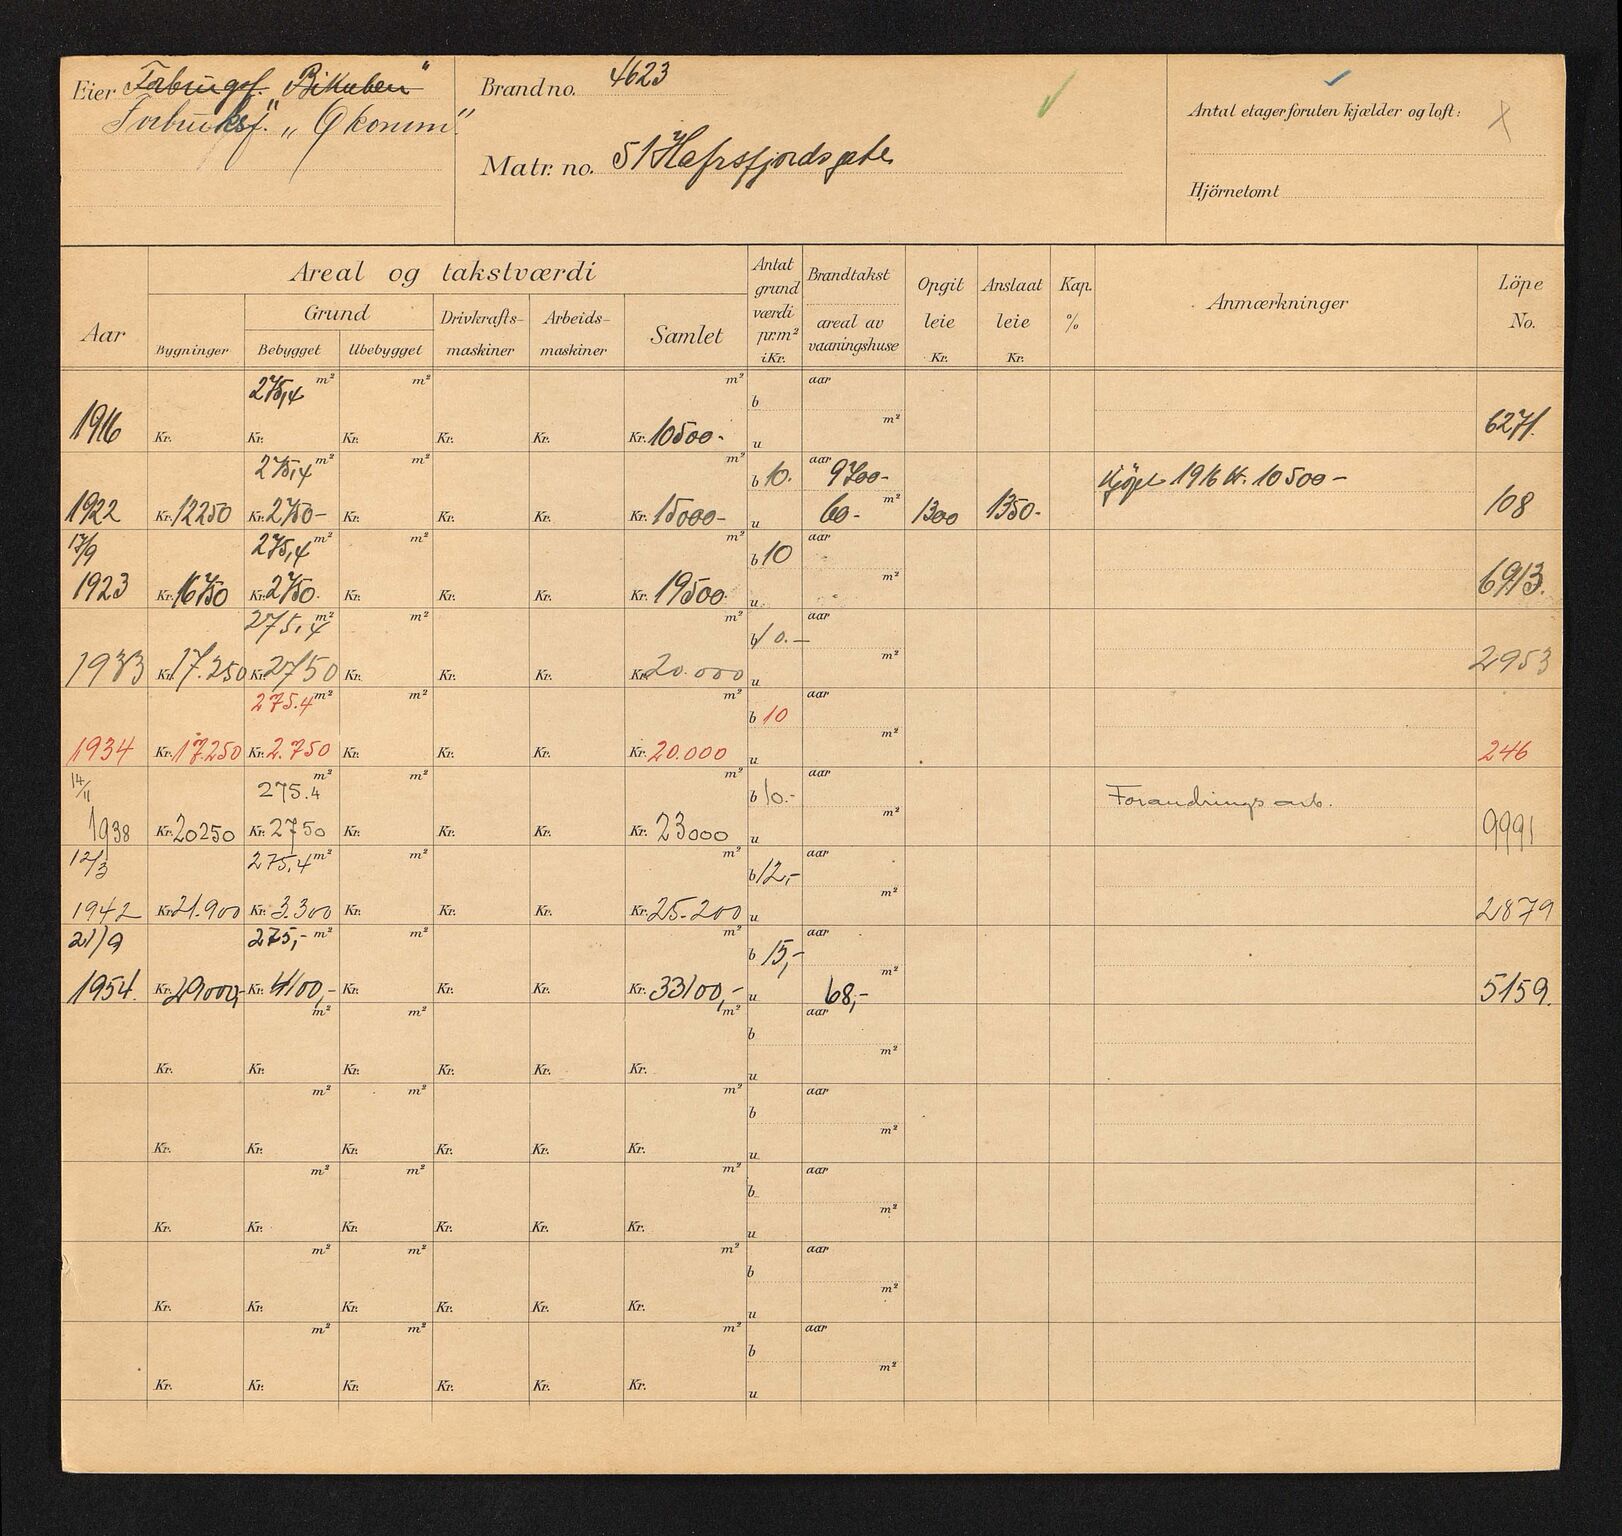 Eier Forbrugsf. "Bikuben"
Forbruksf. "Økonom"
Brand no. 4623
Matr. no. 51 Hafrsfjordsgate
Antal etager foruten kjælder og loft:
Hjörnetomt
Aar
Areal og takstværdi
Grund
Bygninger
Bebygget
Ubebygget
Drivkrafts-maskiner
Arbeids-maskiner
Samlet
Antat grund værdi pr. m² i Kr.
Brandtakst
areal av vaaningshuse
Opgit leie Kr.
Anslaat leie Kr.
Kap. %
Anmærkninger
Löpe No.
275,4 m² m² m² b aar
1916 Kr. Kr. Kr. Kr. Kr. Kr. 10500- u m² 6271.
275,4 m² m² m² b 10. aar 9700- Kjöpt 1916 kr. 10500-
1922 Kr. 12250 Kr. 2750- Kr. Kr. Kr. Kr. 15000- u 60- m² 1300 1350- 108
17/9 275,4 m² m² m² b 10 aar
1923 Kr. 16750 Kr. 2750. Kr. Kr. Kr. Kr. 19500 u m² 6913.
275,4 m² m² m² b 10.- aar
1933 Kr. 17.250 Kr. 2750 Kr. Kr. Kr. Kr. 20.000 u m² 2953
275.4 m² m² m² b 10 aar
1934 Kr. 17.250 Kr. 2.750 Kr. Kr. Kr. Kr. 20.000 u m² 246
14/11 275.4 m² m² m² b 10.- aar Forandrings arb.
1938 Kr. 20250 Kr. 2750 Kr. Kr. Kr. Kr. 23000 u m² 9991
12/3 275,4 m² m² m² b 12,- aar
1942 Kr. 21.900 Kr. 3.300 Kr. Kr. Kr. Kr. 25.200 u m² 2879
21/9 275,- m² m² m² b 15,- aar
1954. Kr. 29000,- Kr. 4100,- Kr. Kr. Kr. Kr. 33100,- u 68,- m² 5159.
m² m² m² b aar
Kr. Kr. Kr. Kr. Kr. Kr. u m²
m² m² m² b aar
Kr. Kr. Kr. Kr. Kr. Kr. u m²
m² m² m² b aar
Kr. Kr. Kr. Kr. Kr. Kr. u m²
m² m² m² b aar
Kr. Kr. Kr. Kr. Kr. Kr. u m²
m² m² m² b aar
Kr. Kr. Kr. Kr. Kr. Kr. u m²